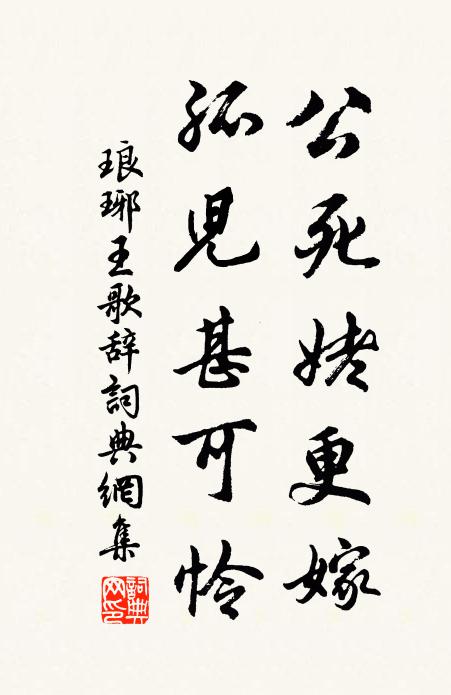 公死姥更嫁
孤児甚可怜
琅琊王歌辞詞典網集
詞典网印